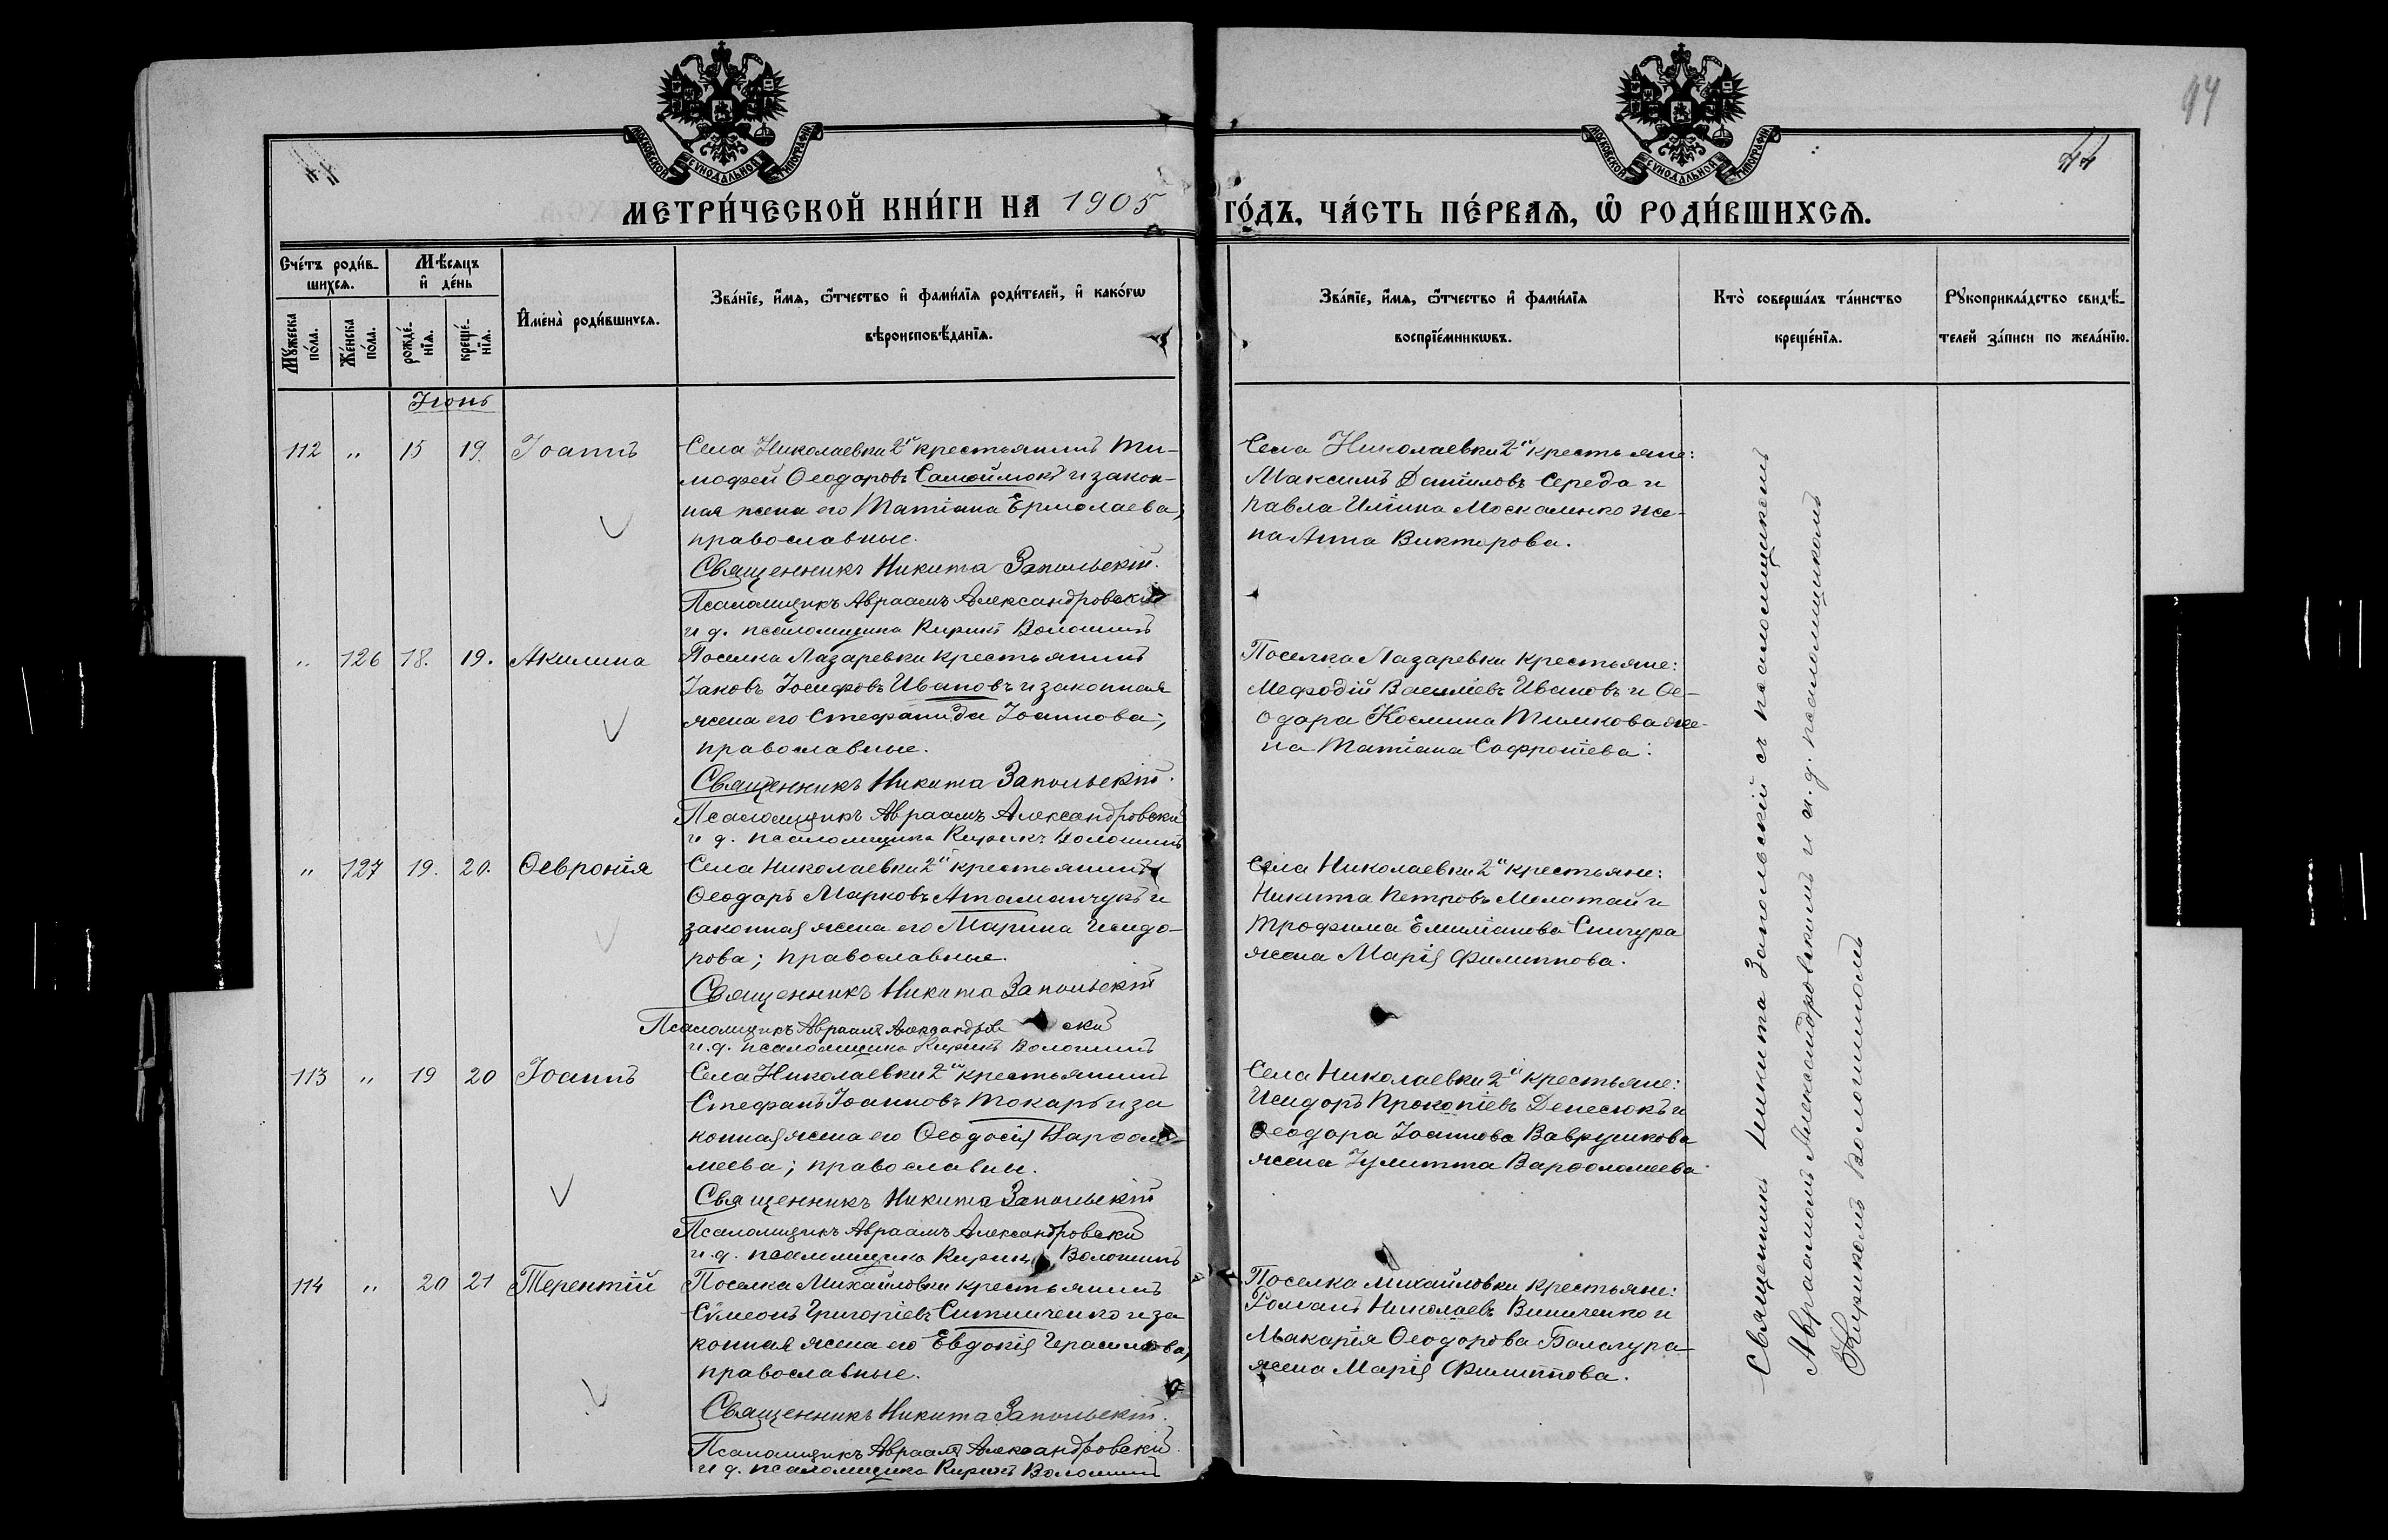 94
44
44
МОСКОВСКОЙ СѴНОДАЛЬНОЙ ТИПОГРАФІИ
МОСКОВСКОЙ СѴНОДАЛЬНОЙ ТИПОГРАФІИ
МЕТРИ́ЧЕСКОЙ КНИ́ГИ НА 1905 ГО́ДЪ, ЧА́СТЬ ПЕ́РВАѦ, Ѡ҆ РОДИ́ВШИХСѦ.
Сче́тъ роди́в-
шихсѧ.
Мѣ́сѧцъ
и҆ де́нь
Мꙋ́жеска
по́ла.
Же́нска
по́ла.
рожде́-
нїѧ.
креще́-
нїѧ.
И҆мена̀ роди́вшихсѧ.
Зва́нїе, и҆́мѧ, ѻ҆́тчество и҆ фами́лїѧ роди́телей, и҆ како́гѡ
вѣроисповѣ́данїѧ.
Зва́нїе, и҆́мѧ, ѻ҆́тчество и҆ фами́лїѧ
воспрїе́мникѡвъ.
Кто̀ соверша́лъ та́инство
креще́нїѧ.
Рꙋкоприкла́дство свидѣ́-
телей за́писи по жела́нїю.
Іюнь
112 " 15 19. Іоаннъ
Села Николаевки 2й крестьянинъ Ти-
мофей Ѳеодоровъ Самойлюкъ и закон-
ная жена его Татіана Ермолаева;
православные.
Священникъ Никита Запольскій.
Псаломщикъ Авраамъ Александровскій
и д. псаломщика Кирикъ Волошинъ
Села Николаевки 2й крестьяне:
Максимъ Даниловъ Середа и
Павла Ильина Москаленко же-
на Анна Викторова.
" 126 18. 19. Акилина
Поселка Лазаревки крестьянинъ
Іаковъ Іосифовъ Ивановъ и законная
жена его Стефанида Іоаннова;
православные.
Священникъ Никита Запольскій.
Псаломщикъ Авраамъ Александровскій
и д. псаломщика Кирикъ Волошинъ
Поселка Лазаревки крестьяне:
Меѳодій Василіевъ Ивановъ и Ѳе-
одора Космина же-
на Татіана Софроніева.
" 127 19. 20. Ѳевронія
Села Николаевки 2й крестьянинъ
Ѳеодоръ Марковъ Атаманчукъ и
законная жена его Марина Исидо-
рова; православные.
Священникъ Никита Запольскій
Псаломщикъ Авраамъ Александровскій
и.д. псаломщика Кирикъ Волошинъ
Села Николаевки 2й крестьяне:
Никита Петровъ и
Трофима Емиліанова Снигура
жена Марія Филиппова.
113 " 19 20 Іоаннъ
Села Николаевки 2й крестьянинъ
Стефанъ Іоанновъ Токарь и за
конная жена его Ѳеодосія Варѳоло-
меева; православн.
Священникъ Никита Запольскій
Псаломщикъ Авраамъ Александровскій
и.д. псаломщика Кирикъ Волошинъ
Села Николаевки 2й крестьяне:
Исидоръ Прокопіевъ Денесюкъ и
Ѳеодора Іоаннова Ваврушкова
жена Іулитта Варѳоломеева
114 " 20 21 Терентій
Поселка Михайловки крестьянинъ
Сѵмеонъ Григоріевъ Ситниченко и за
конная жена его Евдокія Герасимова;
православные.
Священникъ Никита Запольскій.
Псаломщикъ Авраамъ Александровскій.
и д. псаломщика Кирикъ Волошинъ
Поселка Михайловки крестьяне:
Романъ Николаевъ Винниченко и
Макарія Ѳеодорова Балагура
жена Марія Филиппова.
Священникъ Никита Запольскій съ псаломщикомъ
Авраамомъ Александровскимъ и и.д. псаломщикомъ
Кирикомъ Волошиномъ